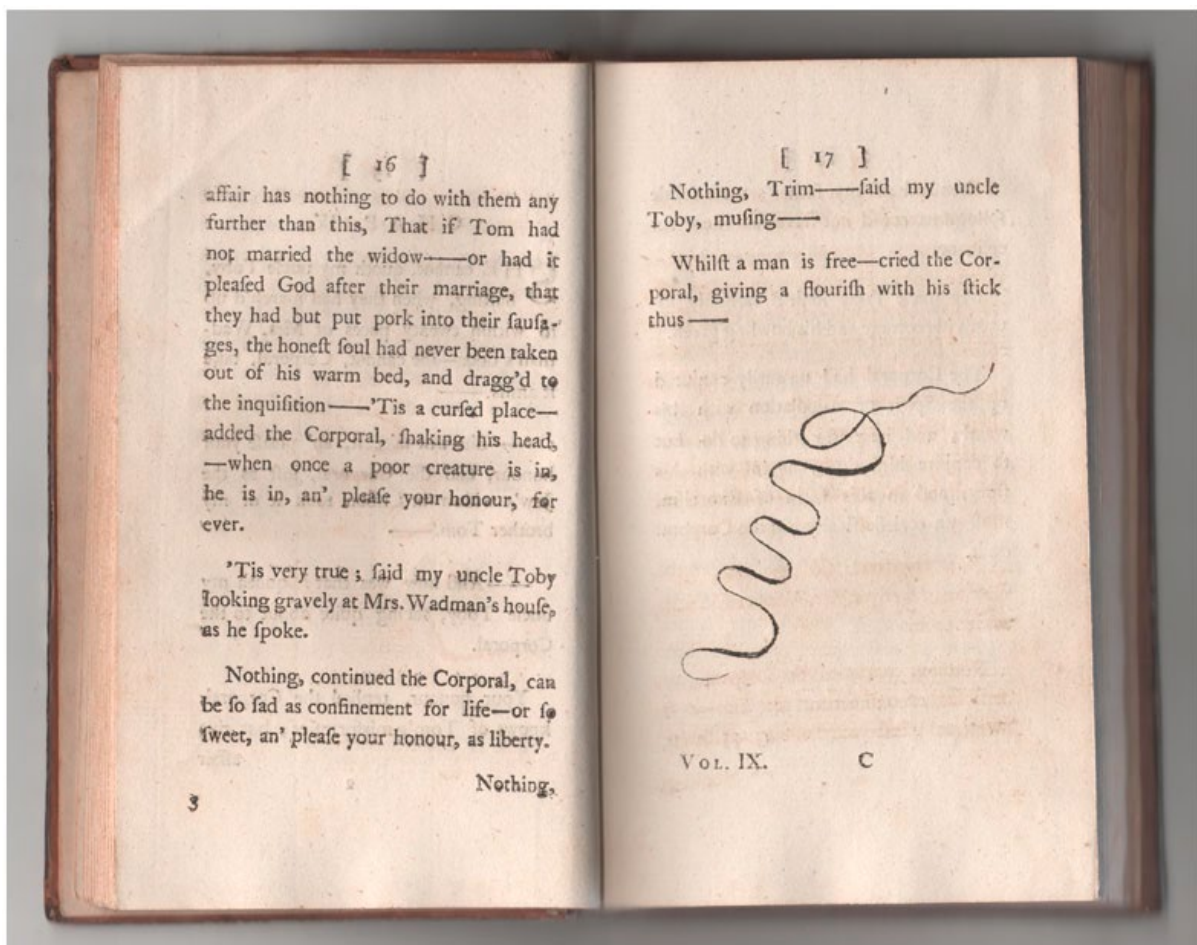 [ 16 ]
affair has nothing to do with them any
further than this, That if Tom had
not married the widow——or had it
pleaſed God after their marriage, that
they had but put pork into their ſauſa-
ges, the honeſt ſoul had never been taken
out of his warm bed, and dragg'd to
the inquiſition——'Tis a curſed place—
added the Corporal, ſhaking his head,
—when once a poor creature is in,
he is in, an' pleaſe your honour, for
ever.
'Tis very true; ſaid my uncle Toby
looking gravely at Mrs. Wadman's houſe,
as he ſpoke.
Nothing, continued the Corporal, can
be ſo ſad as confinement for life—or ſo
ſweet, an' pleaſe your honour, as liberty.
Nothing,
3
[ 17 ]
Nothing, Trim——ſaid my uncle
Toby, muſing——
Whilſt a man is free—cried the Cor-
poral, giving a flouriſh with his ſtick
thus——
VOL. IX. C